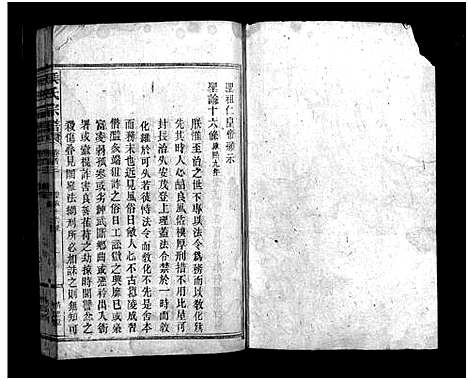 聖祖仁皇帝頒示
聖諭十六條康熙九年
朕惟至治之世不專以法令為務而以教化為
先其時人心醇良風俗樸厚刑措不用比屋可
封長治久安茂登上理蓋法令禁於一時而教
化維於可久若徒恃法令而教化不先是舍本
而務末也近見風俗日敝人心不古囂凌成習
僭濫多端狙詐之術日工獄訟之興靡已或豪
富凌弱孤寒或劣紳武斷鄉曲或惡衿出入衙
署或蠹棍詐害良善萑苻之劫掠時聞讐忿之
殺傷疊見陷罹法網刑所必加誅之則無知可